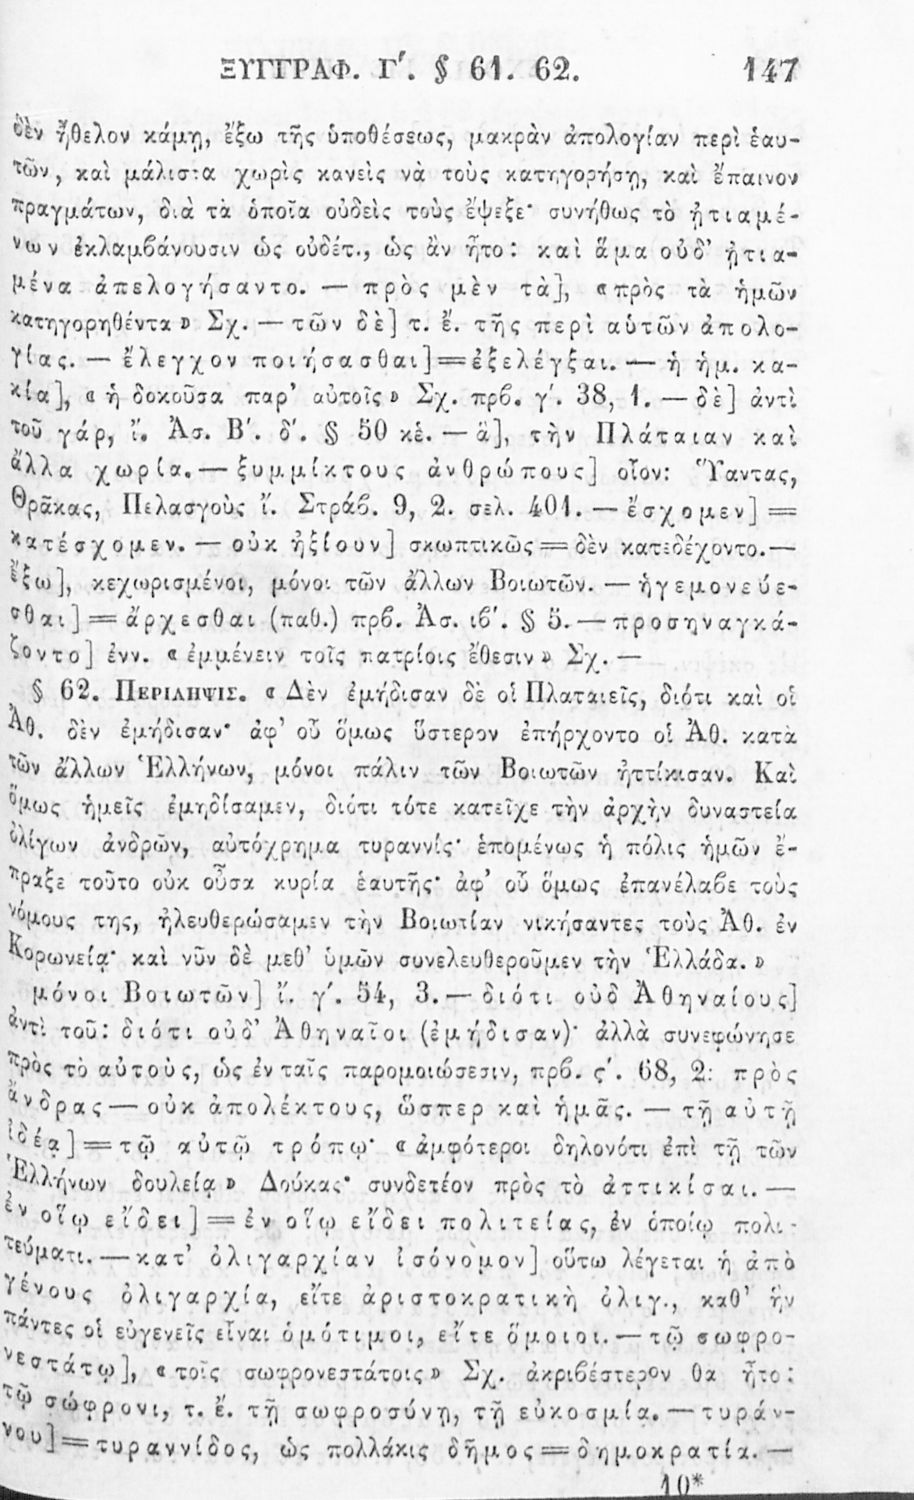 ΞΥΓΓΡΑΦ. Γ΄. § 61. 62. 147
δὲν ἤθελον κάμῃ, ἔξω τῆς ὑποθέσεως, μακρὰν ἀπολογίαν περὶ ἑαυ-
τῶν, καὶ μάλιστα χωρὶς κανεὶς νὰ τοὺς κατηγορήσῃ, καὶ ἔπαινον
πραγμάτων, διὰ τὰ ὁποῖα οὐδεὶς τοὺς ἔψεξε· συνήθως τὸ ᾐτιαμέ-
νων ἐκλαμβάνουσιν ὡς οὐδέτ., ὡς ἂν ἦτο: καὶ ἅμα οὐδ' ᾐτια-
μένα ἀπελογήσαντο. — πρὸς μὲν τὰ], «πρὸς τὰ ἡμῶν
κατηγορηθέντα» Σχ. — τῶν δὲ] τ. ἔ. τῆς περὶ αὑτῶν ἀπολο-
γίας. — ἔλεγχον ποιήσασθαι]=ἐξελέγξαι. — ἡ ἡμ. κα-
κία], «ἡ δοκοῦσα παρ' αὐτοῖς» Σχ. πρβ. γ΄. 38, 1. — δὲ] ἀντὶ
τοῦ γάρ, ἴ. Ἀσ. Β΄. δ΄. § 50 κἑ. — ἃ], τὴν Πλάταιαν καὶ
ἄλλα χωρία. — ξυμμίκτους ἀνθρώπους] οἷον: Ὕαντας,
Θρᾶκας, Πελασγοὺς ἴ. Στράβ. 9, 2. σελ. 401. — ἔσχομεν]=
κατέσχομεν. — οὐκ ἠξίουν] σκωπτικῶς=δὲν κατεδέχοντο. —
ἔξω], κεχωρισμένοι, μόνοι τῶν ἄλλων Βοιωτῶν. — ἡγεμονεύε-
σθαι]=ἄρχεσθαι (παθ.) πρβ. Ἀσ. ιβ΄. § 5. — προσηναγκά-
ζοντο] ἐνν. «ἐμμένειν τοῖς πατρίοις ἔθεσιν» Σχ. —
§ 62. ΠΕΡΙΛΗΨΙΣ. «Δὲν ἐμήδισαν δὲ οἱ Πλαταιεῖς, διότι καὶ οἱ
Ἀθ. δὲν ἐμήδισαν· ἀφ' οὗ ὅμως ὕστερον ἐπήρχοντο οἱ Ἀθ. κατὰ
τῶν ἄλλων Ἑλλήνων, μόνοι πάλιν τῶν Βοιωτῶν ἠττίκισαν. Καὶ
ὅμως ἡμεῖς ἐμηδίσαμεν, διότι τότε κατεῖχε τὴν ἀρχὴν δυναστεία
ὀλίγων ἀνδρῶν, αὐτόχρημα τυραννίς· ἑπομένως ἡ πόλις ἡμῶν ἔ-
πραξε τοῦτο οὐκ οὖσα κυρία ἑαυτῆς· ἀφ' οὗ ὅμως ἐπανέλαβε τοὺς
νόμους της, ἠλευθερώσαμεν τὴν Βοιωτίαν νικήσαντες τοὺς Ἀθ. ἐν
Κορωνείᾳ· καὶ νῦν δὲ μεθ' ὑμῶν συνελευθεροῦμεν τὴν Ἑλλάδα.»
μόνοι Βοιωτῶν] ἴ. γ΄. 54, 3. — διότι οὐδ Ἀθηναίους]
ἀντὶ τοῦ: διότι οὐδ' Ἀθηναῖοι (ἐμήδισαν)· ἀλλὰ συνεφώνησε
πρὸς τὸ αὐτοὺς, ὡς ἐν ταῖς παρομοιώσεσιν, πρβ. ς΄. 68, 2: πρὸς
ἄνδρας — οὐκ ἀπολέκτους, ὥσπερ καὶ ἡμᾶς. — τῇ αὐτῇ
ἰδέᾳ]=τῷ αὐτῷ τρόπῳ· «ἀμφότεροι δηλονότι ἐπὶ τῇ τῶν
Ἑλλήνων δουλείᾳ» Δούκας· συνδετέον πρὸς τὸ ἀττικίσαι. —
ἐν οἵῳ εἴδει]=ἐν οἵῳ εἴδει πολιτείας, ἐν ὁποίῳ πολι-
τεύματι. — κατ' ὀλιγαρχίαν ἰσόνομον] οὕτω λέγεται ἡ ἀπὸ
γένους ὀλιγαρχία, εἴτε ἀριστοκρατικὴ ὀλιγ., καθ' ἣν
πάντες οἱ εὐγενεῖς εἶναι ὁμότιμοι, εἴτε ὅμοιοι. — τῷ σωφρο-
νεστάτῳ], «τοῖς σωφρονεστάτοις» Σχ. ἀκριβέστερον θα ἦτο:
τῷ σώφρονι, τ. ἔ. τῇ σωφροσύνῃ, τῇ εὐκοσμίᾳ. — τυράν-
νου]=τυραννίδος, ὡς πολλάκις δῆμος=δημοκρατία. —
10*